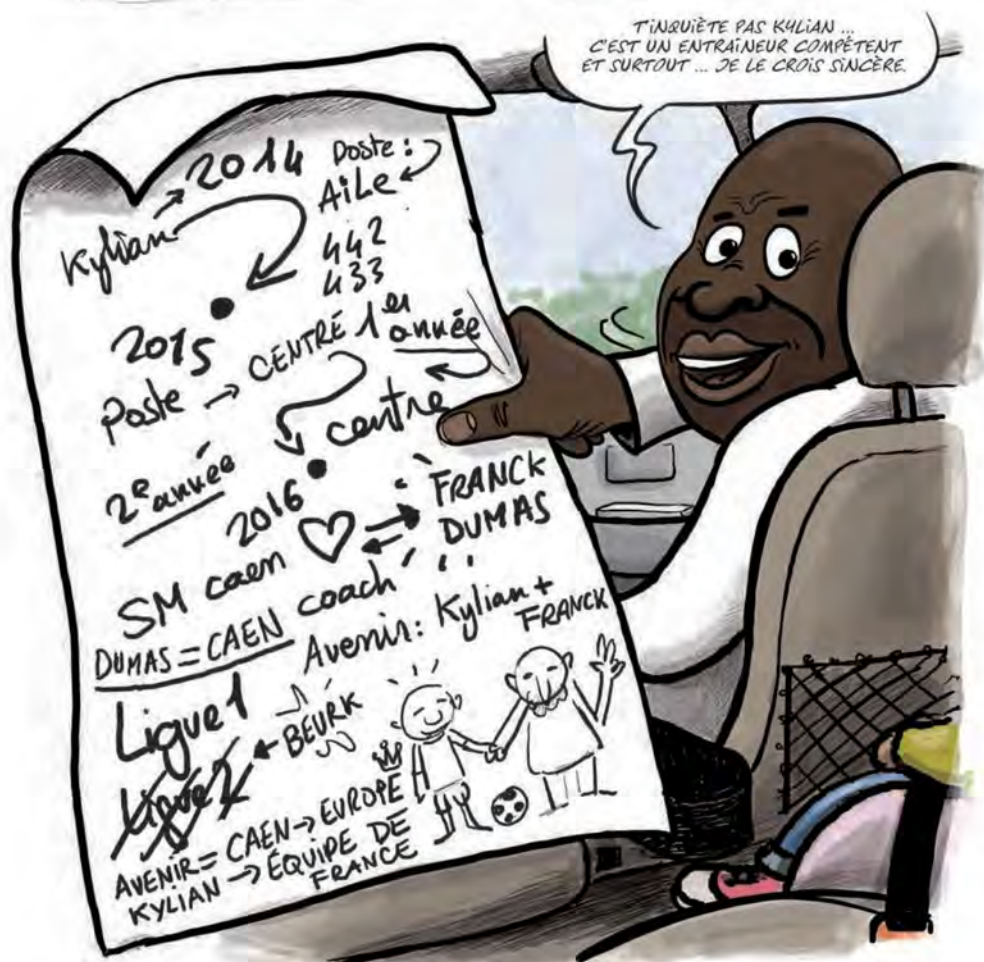 T'INQUIÈTE PAS KYLIAN ...
C'EST UN ENTRAÎNEUR COMPÉTENT
ET SURTOUT ... JE LE CROIS SINCÈRE.
Kylian → 2014
Poste :
AiLe
442
433
2015
Poste → CENTRÉ 1er
année
centre
2e année
2016
SM caen ♡ coach
FRANCK
DUMAS
DUMAS = CAEN
Avenir: Kylian +
FRANCK
Ligue 1
Ligue 2 ← BEURK
AVENIR = CAEN → EUROPE
KYLIAN → ÉQUIPE DE
FRANCE